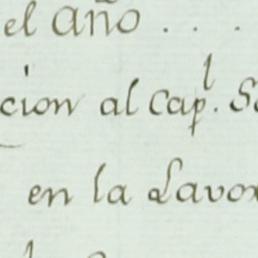 el año . . .
cion al Cap.l S
en la Lavo